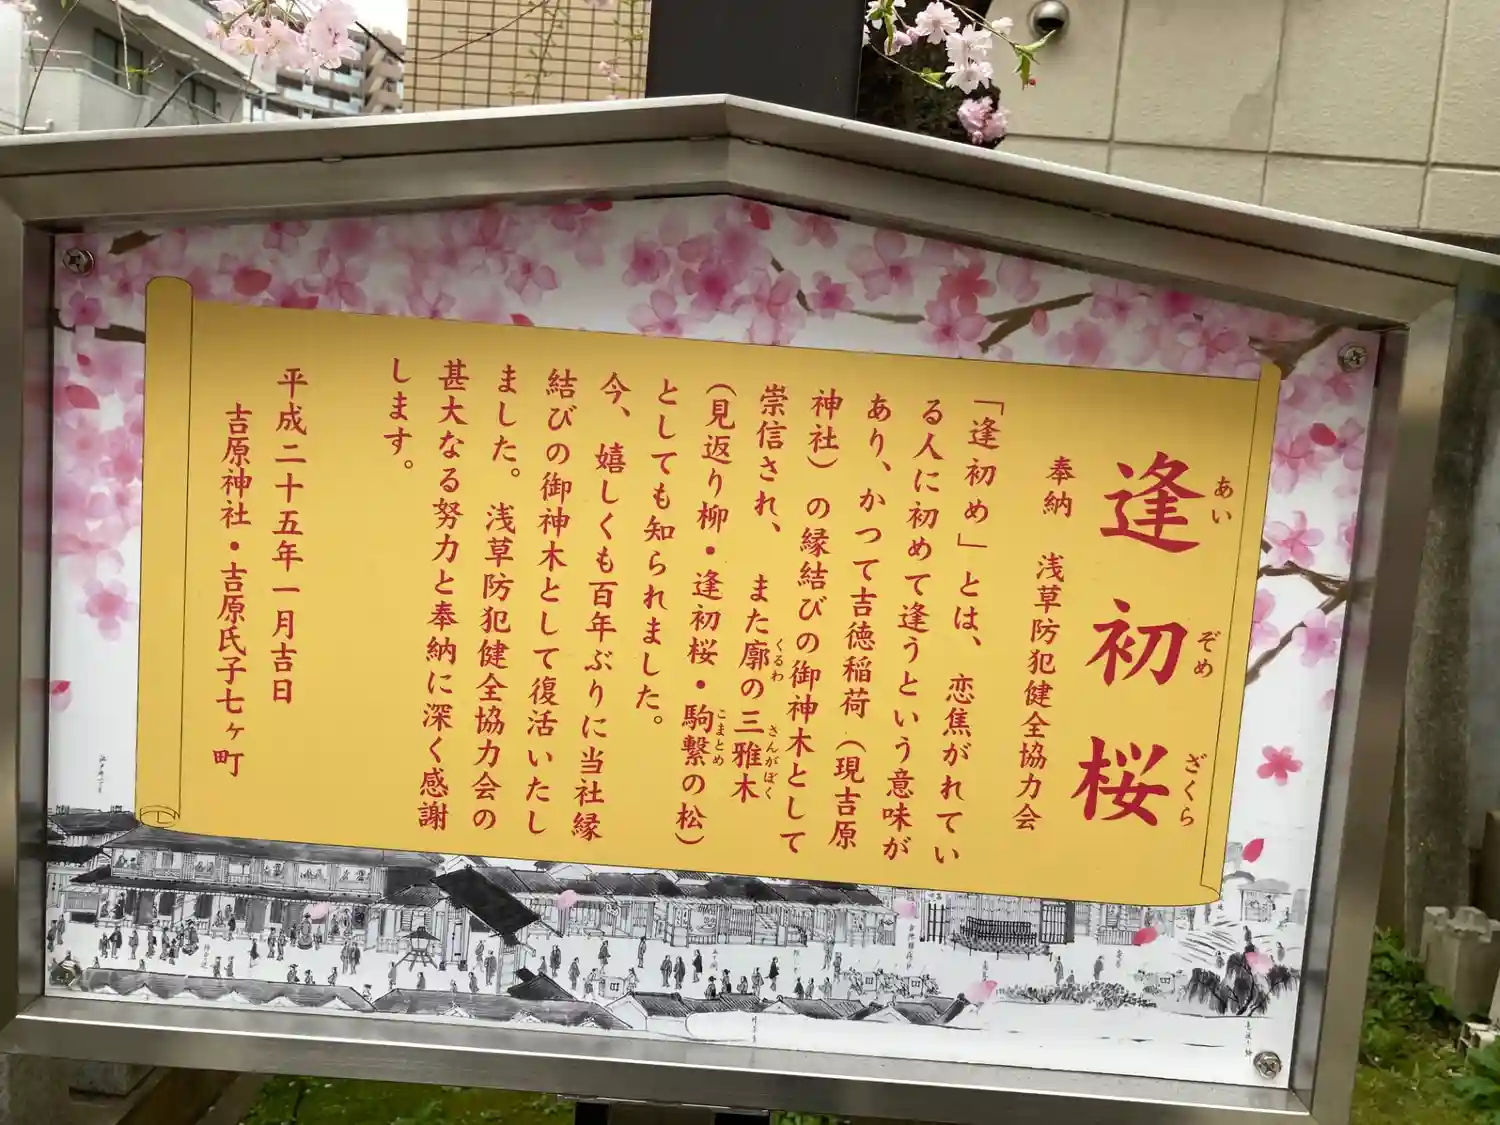 逢初桜
あいぞめざくら
奉納 浅草防犯健全協力会
「逢初め」とは、恋焦がれてい
る人に初めて逢うという意味が
あり、かつて吉徳稲荷（現吉原
神社）の縁結びの御神木として
崇信され、また廓の三雅木
くるわ さんがぼく
（見返り柳・逢初桜・駒繋の松）
こまとめ
としても知られました。
今、嬉しくも百年ぶりに当社縁
結びの御神木として復活いたし
ました。浅草防犯健全協力会の
甚大なる努力と奉納に深く感謝
します。
平成二十五年一月吉日
吉原神社・吉原氏子七ヶ町